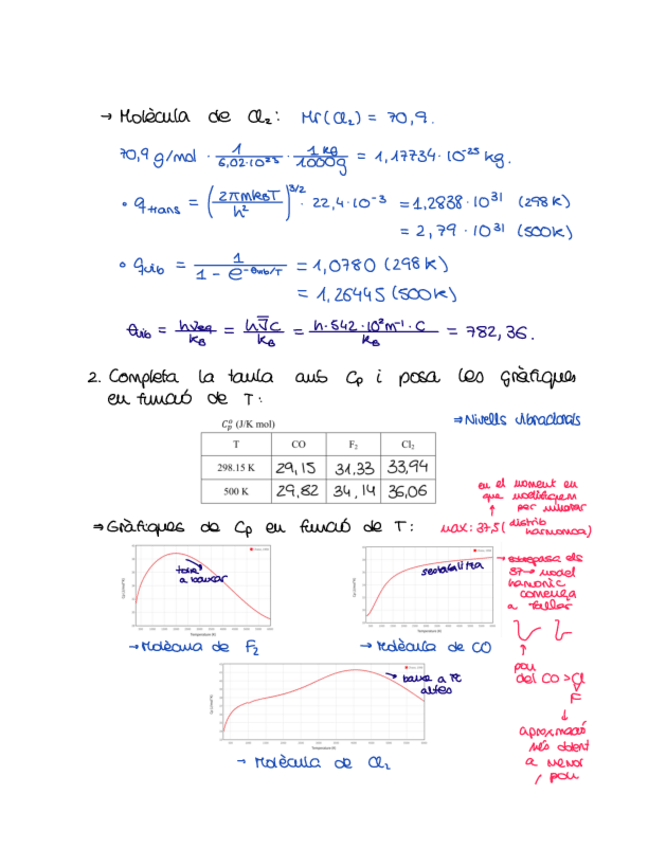 → Molècula de Cl₂: Mr(Cl₂) = 70,9.
70,9 g/mol · 1/6,02·10²³ · 1 kg/1000g = 1,17734·10⁻²⁵ kg.
• qtrans = (2πmkBT/h²)^3/2 · 22,4·10⁻³ = 1,2838·10³¹ (298K)
= 2,79·10³¹ (500K)
• qvib = 1/(1 - e^-θvib/T) = 1,0780 (298K)
= 1,26445 (500K)
θvib = hνeq/kB = hν̄c/kB = h·542·10²m⁻¹·c/kB = 782,36.
2. Completa la taula amb Cp i posa les gràfiques
en funció de T:
Cp° (J/K mol)
⇒ Nivells vibracionals
T CO F₂ Cl₂
298.15 K 29,15 31,33 33,94
500 K 29,82 34,14 36,06
en el moment en
que modifiquem
per
⇒ Gràfiques de Cp en funció de T:
max: 37,5 (distrib
harmonica)
torna
a baixar
estabilitza
→ sobrepassa els
37 → model
harmònic
comença
a fallar
Temperature (K)
Temperature (K)
→ Molècula de F₂
→ Molècula de CO
pou
del CO > Cl
F
baixa a T
altes
aproximació
més dolent
a menor
pou
Temperature (K)
→ Molècula de Cl₂